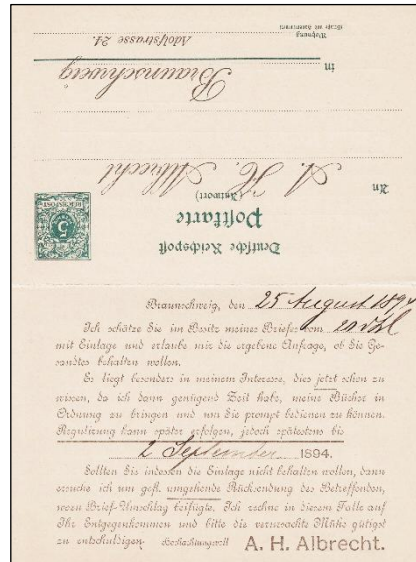 Wohnung
(Straße und Hausnummer)
Adolfstrasse 21.
in
Braunschweig
A. H. Albrecht
An
(Antwort)
Postkarte
Deutsche Reichspost
5
REICHSPOST
Braunschweig, den 25 August 1894
Ich schätze Sie im Besitz meines Briefes vom
mit Einlage und erlaube mir die ergebene Anfrage, ob Sie Ge-
sandtes behalten wollen.
Es liegt besonders in meinem Interesse, dies jetzt schon zu
wissen, da ich dann genügend Zeit habe, meine Bücher in
Ordnung zu bringen und um Sie prompt bedienen zu können.
Regulirung kann später erfolgen, jedoch spätestens bis
2 September 1894.
Sollten Sie indessen die Einlage nicht behalten wollen, dann
ersuche ich um gefl. umgehende Rücksendung des Betreffenden,
wozu Brief-Umschlag beifügte. Ich rechne in diesem Falle auf
Ihr Entgegenkommen und bitte die verursachte Mühe gütigst
zu entschuldigen. Hochachtungsvoll A. H. Albrecht.